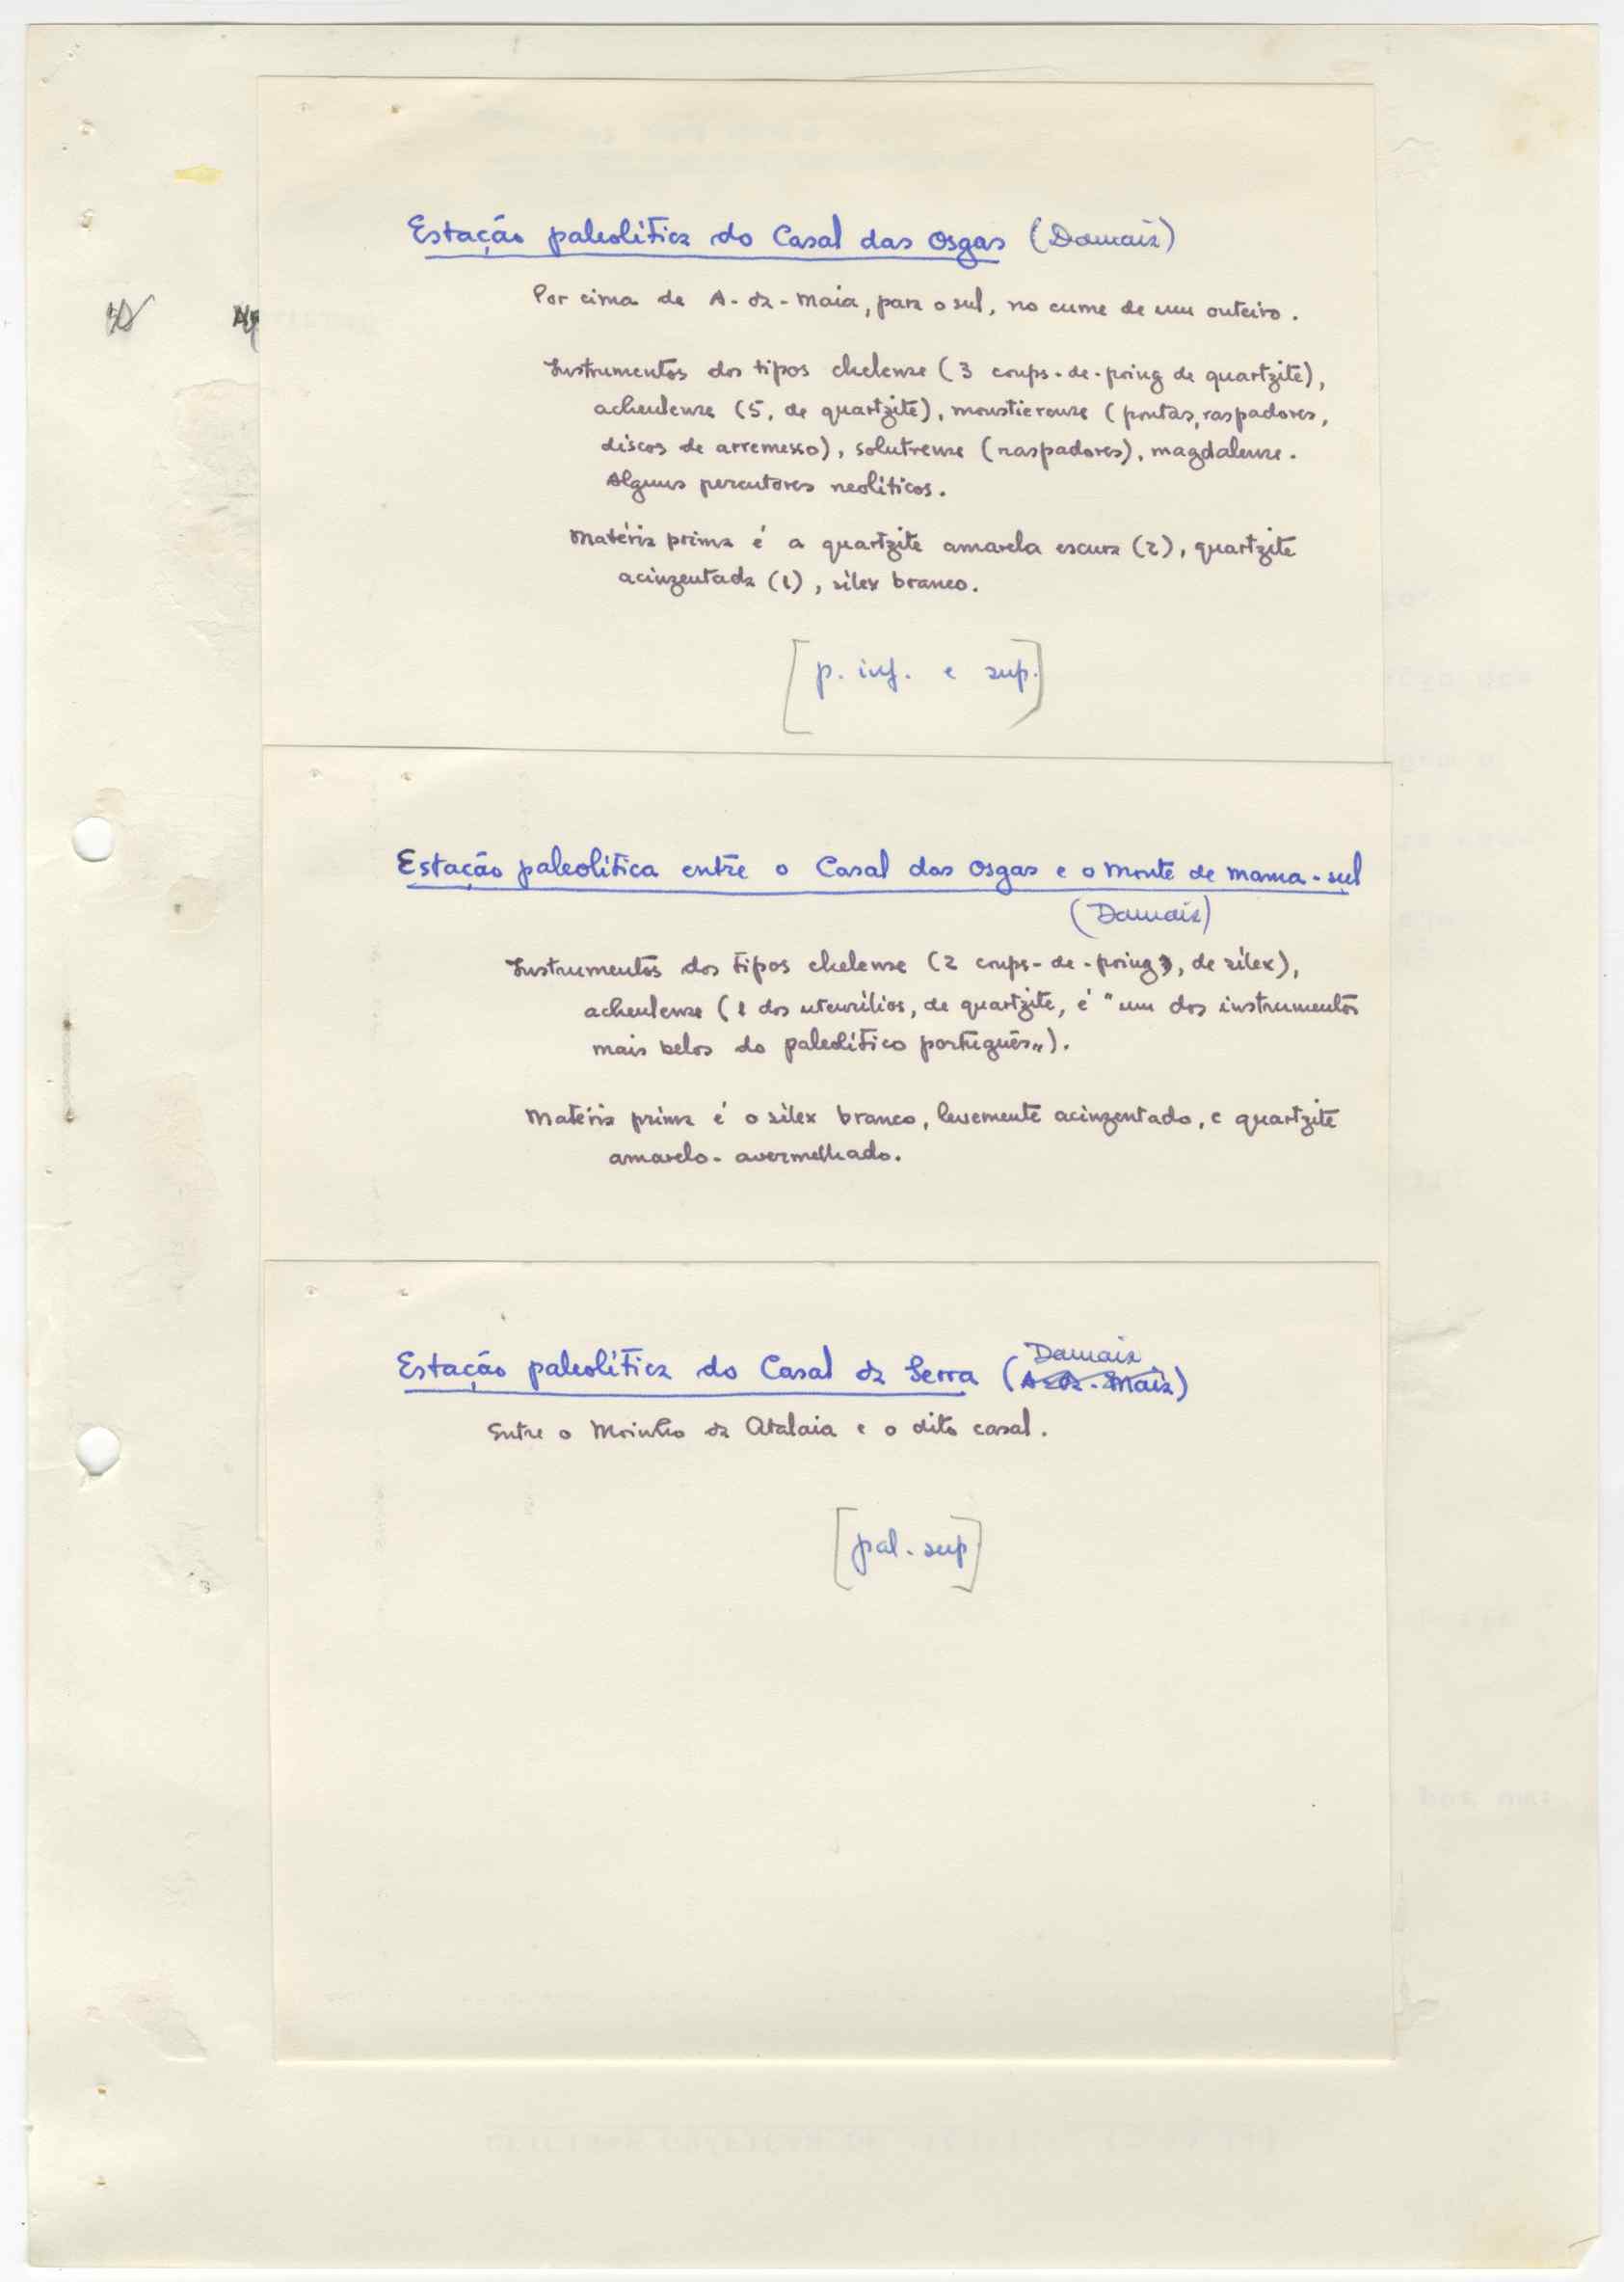 Estação paleolítica do Casal das Osgas (Damaia)
Por cima de A-da-Maia, para o sul, no cume de um outeiro.
Instrumentos dos tipos chelense (3 coups-de-poing de quartzite),
acheulense (5, de quartzite), moustierense (pontas, raspadores,
discos de arremesso), solutrense (raspadores), magdalense.
Alguns percutores neolíticos.
Matéria prima é a quartzite amarela escura (2), quartzite
acinzentada (1), sílex branco.
[p. inf. e sup.]
Estação paleolítica entre o Casal das Osgas e o Monte de Mama-sul
(Damaia)
Instrumentos dos tipos chelense (2 coups-de-poing, de sílex),
acheulense (1 dos utensílios, de quartzite, é "um dos instrumentos
mais belos do paleolítico português").
Matéria prima é o sílex branco, levemente acinzentado, e quartzite
amarelo-avermelhado.
Damaia
Estação paleolítica do Casal da Serra (A-da-Maia)
Entre o Moinho da Atalaia e o dito casal.
[pal. sup]